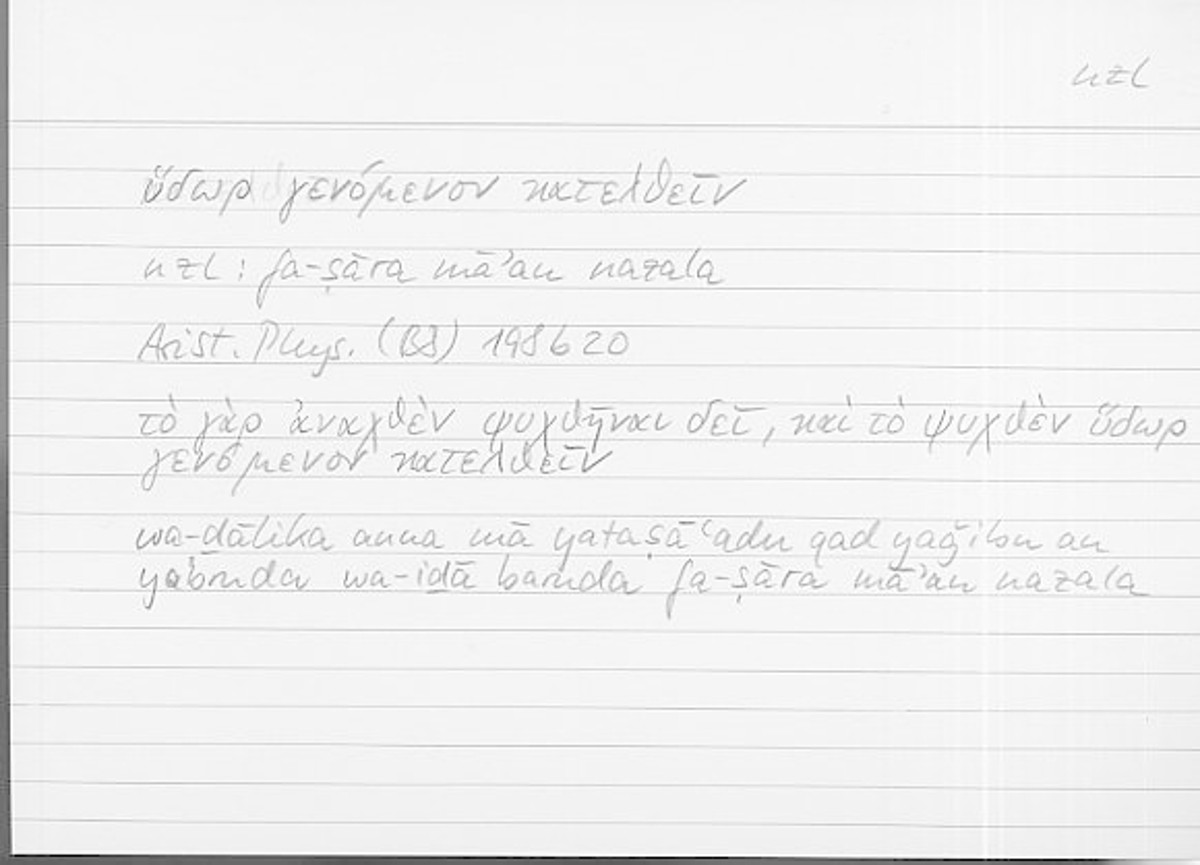 nzl
ὕδωρ γενόμενον κατελθεῖν
nzl: fa-ṣāra māʾan nazala
Arist. Phys. (BJ) 198b20
τὸ γὰρ ἀναχθὲν ψυχθῆναι δεῖ, καὶ τὸ ψυχθὲν ὕδωρ
γενόμενον κατελθεῖν
wa-ḏālika anna mā yataṣāʿadu qad yaǧibu an
yabruda wa-iḏā baruda fa-ṣāra māʾan nazala